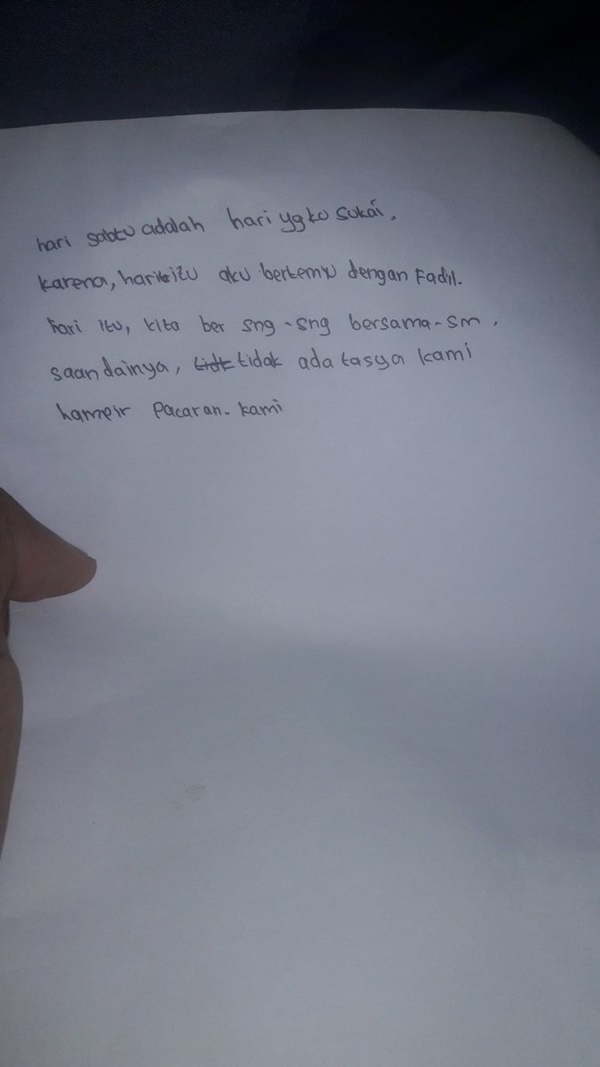 hari sabtu adalah hari yg ku sukai,
karena, hari itu aku bertemu dengan Fadil.
hari itu, kita ber sng-sng bersama-sm,
saandainya, tidk tidak ada tasya kami
hampir pacaran. kami